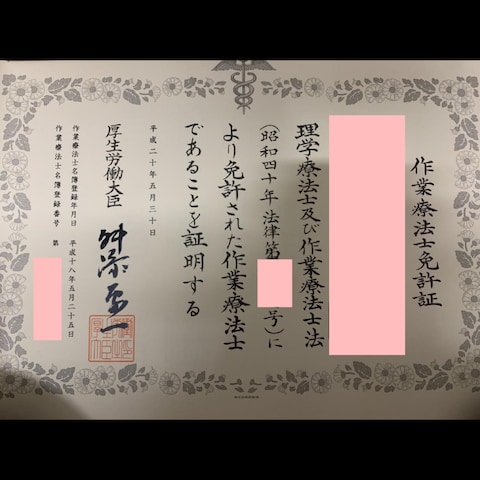 作業療法士免許証
理学療法士及び作業療法士法
（昭和四十年法律第 号）に
より免許された作業療法士
であることを証明する
平成二十年五月三十日
厚生労働大臣 舛添要一
作業療法士名簿登録年月日 平成十八年五月二十五日
作業療法士名簿登録番号 第